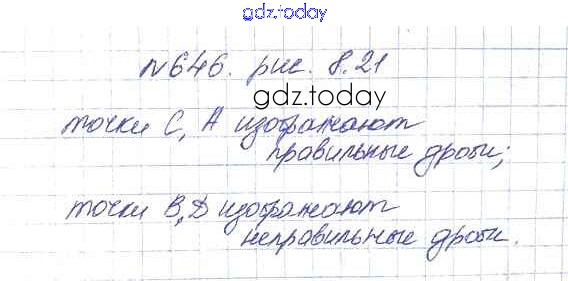 gdz.today
№646. рис. 8.21
gdz.today
точки С, А изображают
правильные дроби;
точки В, D изображают
неправильные дроби.